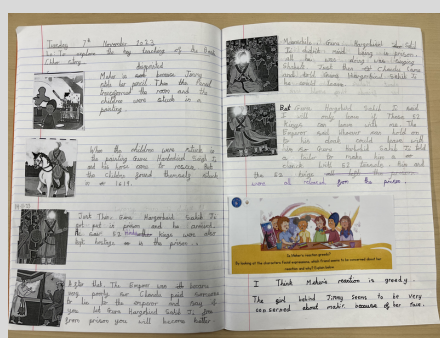 Tuesday 7th November 2023
L.o. To explore the key teachings of the Bandi
Chhor story.
disgusted
Mahir is sad because Jimmy
stole his pencil. Then the Pencil
transformed the room and the
children were stuck in a
painting.
When the children were stuck in
the painting Guru Hargobind Singh Ji
and his horse came to rescue. But
the children found themselves stuck
in 1619.
Just then Guru Hargobind Sahib Ji
got put in prison and he
52 other Kings were also
kept hostage in the prison.
After that, The Emperor was became
very poorly. So Chandu paid someone
to lie to the emperor and say if
you let Guru Hargobind Sahib Ji free
from prison you will become better
Meanwhile, Guru Hargobind Sahib
Ji didn't mind being in prison.
all he was doing was singing
Shabads. Just then Chandu came
and told Guru Hargobind Sahib Ji
he could leave.
But Guru Hargobind Sahib Ji said
I will only leave if These 52
Kings can leave with me. The
Emperor said whoever can hold on
to his cloak could leave with
him. So Guru Hargobind Sahib Ji told
a tailor to make him a
cloak with 52 tassels and
the 52 kings
were all released from the prison.
Is Mahir's reaction greedy?
By looking at the characters' facial expressions, which friend seems to be concerned about his
reaction and why? Explain below.
I Think Mahir's reaction is greedy.
The girl behind Jimmy seems to be very
conserned about mahir because of her face.